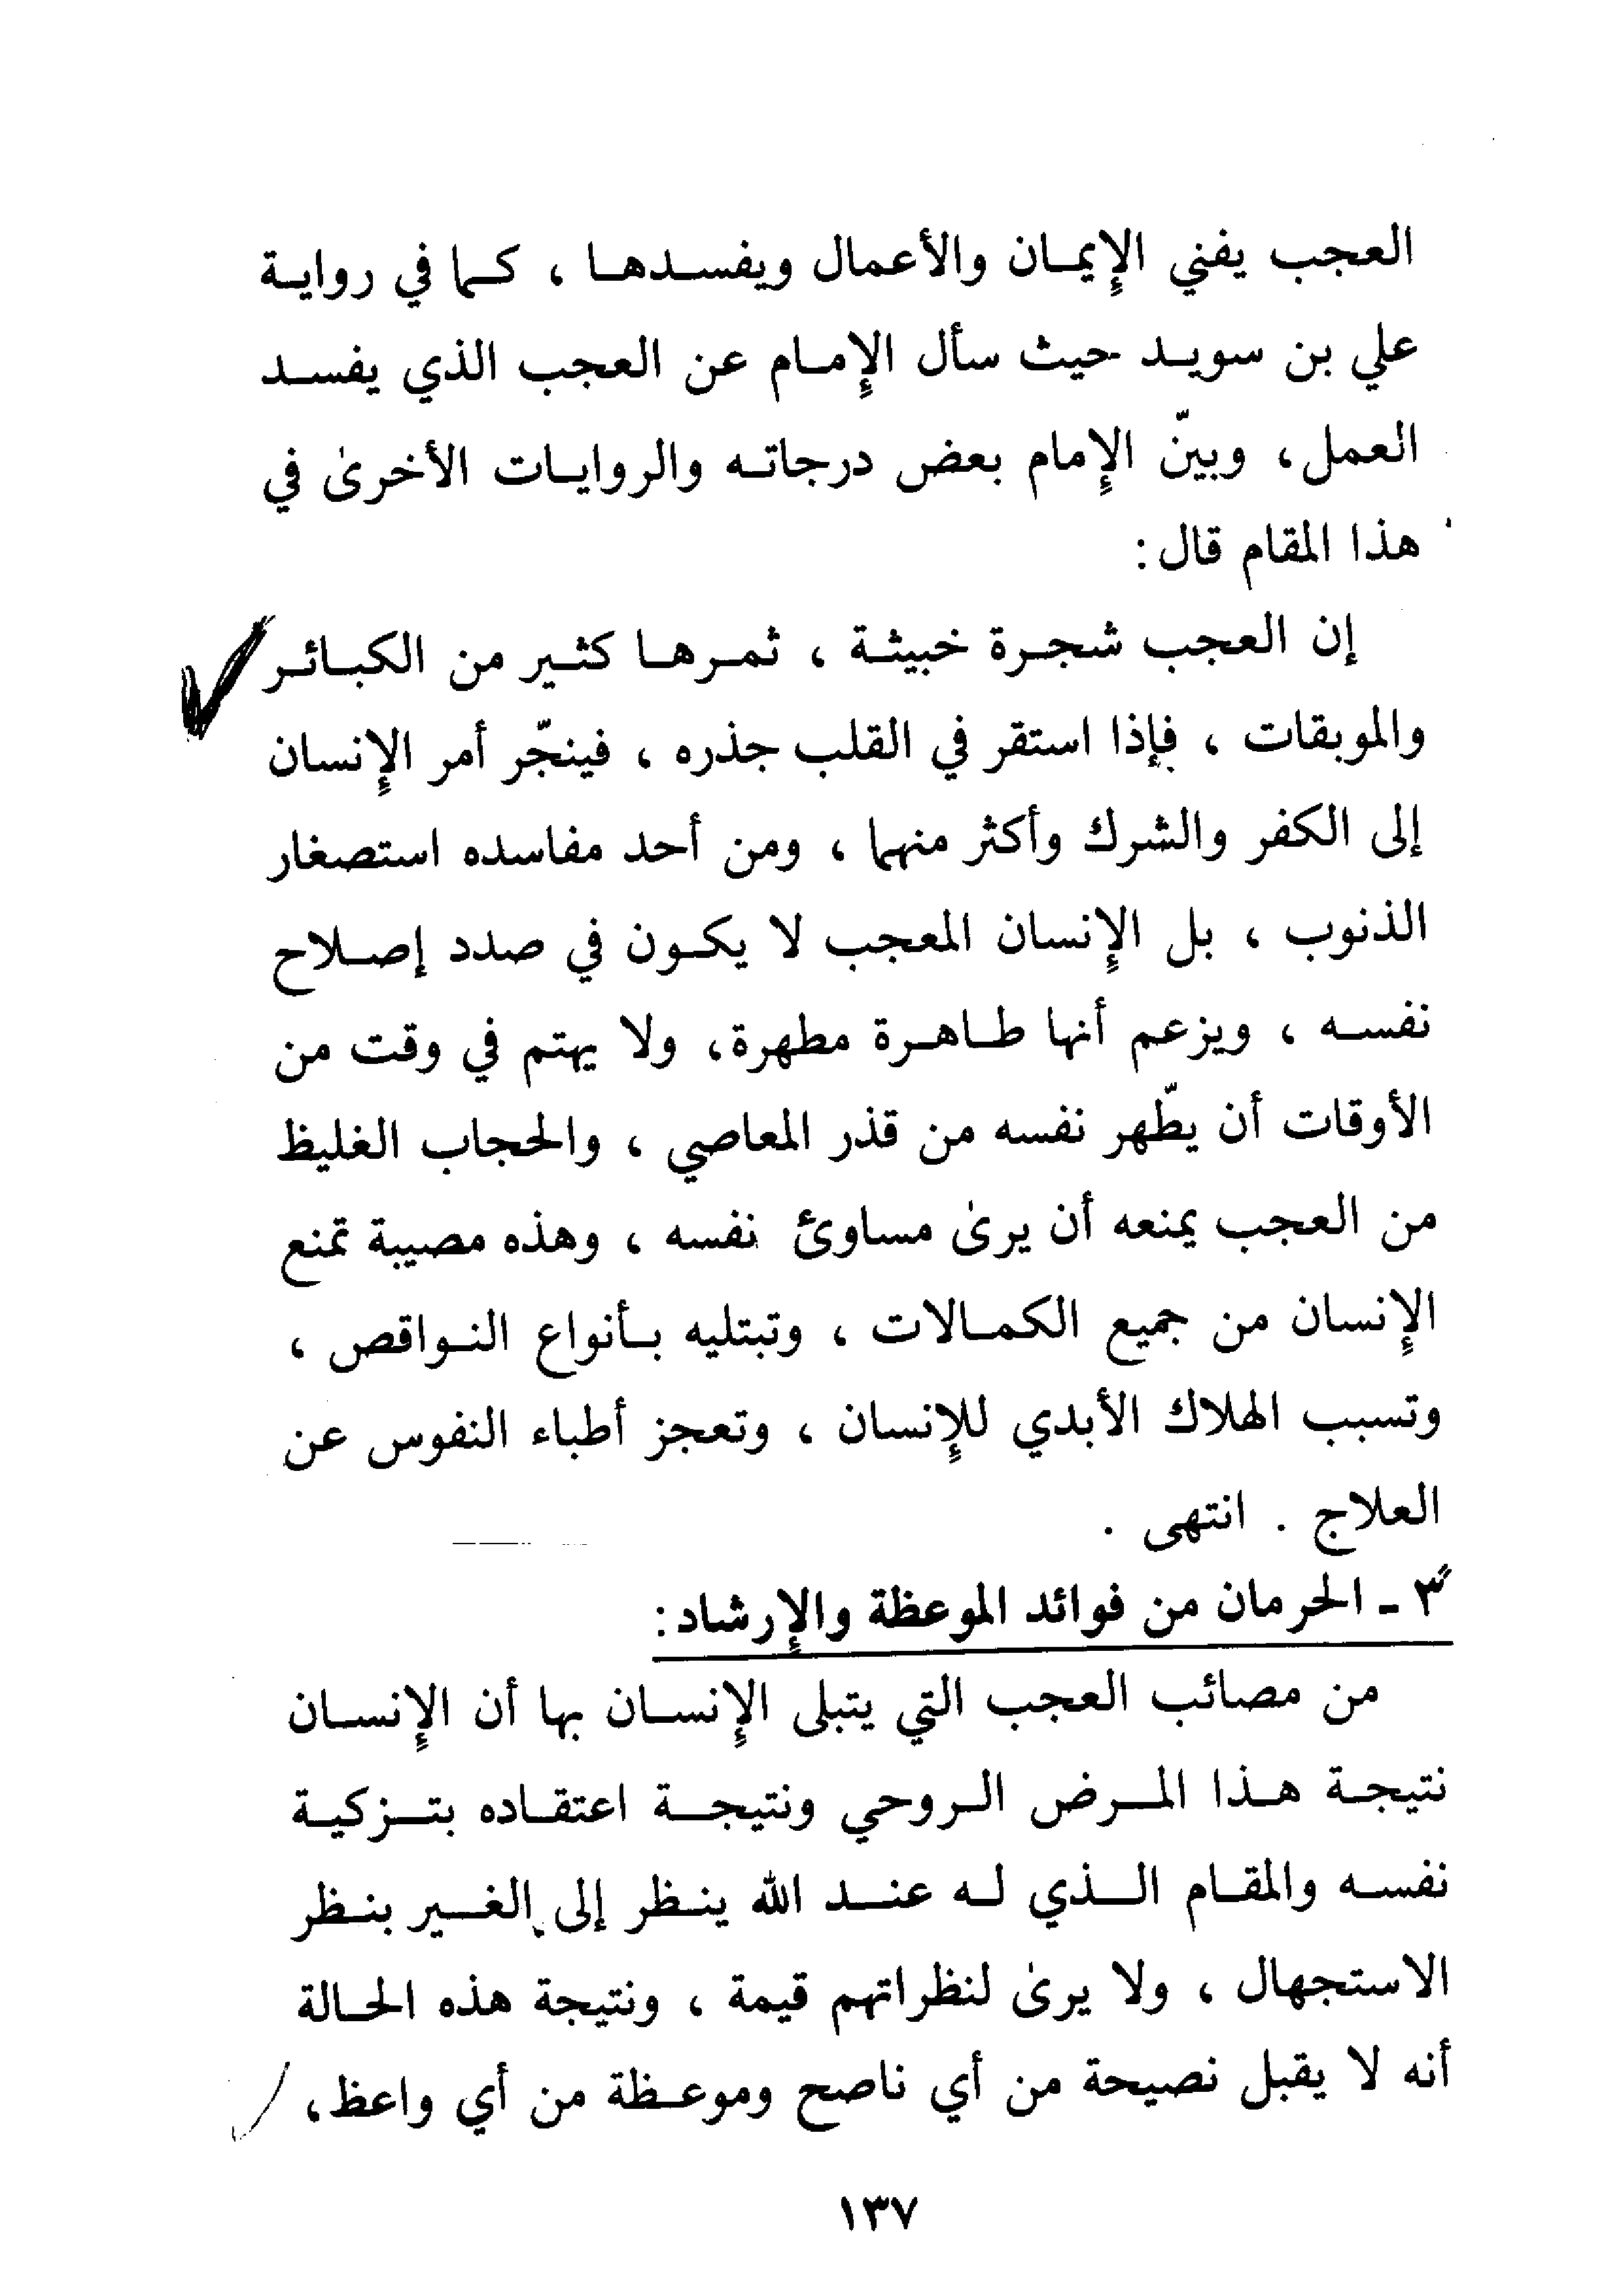 العجب يفني الإيمان والأعمال ويفسدها ، كما في رواية
علي بن سويد حيث سأل الإمام عن العجب الذي يفسد
العمل ، وبينّ الإمام بعض درجاته والروايات الأخرىٰ في
هذا المقام قال :
إن العجب شجرة خبيثة ، ثمرها كثير من الكبائر
والموبقات ، فإذا استقر في القلب جذره ، فينجّر أمر الإنسان
إلى الكفر والشرك وأكثر منهما ، ومن أحد مفاسده استصغار
الذنوب ، بل الإنسان المعجب لا يكون في صدد إصلاح
نفسه ، ويزعم أنها طاهرة مطهرة ، ولا يهتم في وقت من
الأوقات أن يطّهر نفسه من قذر المعاصي ، والحجاب الغليظ
من العجب يمنعه أن يرىٰ مساوئ نفسه ، وهذه مصيبة تمنع
الإنسان من جميع الكمالات ، وتبتليه بأنواع النواقص ،
وتسبب الهلاك الأبدي للإنسان ، وتعجز أطباء النفوس عن
العلاج . انتهى .
٣ - الحرمان من فوائد الموعظة والإرشاد :
من مصائب العجب التي يتبلى الإنسان بها أن الإنسان
نتيجة هذا المرض الروحي ونتيجة اعتقاده بتزكية
نفسه والمقام الذي له عند الله ينظر إلى الغير بنظر
الاستجهال ، ولا يرىٰ لنظراتهم قيمة ، ونتيجة هذه الحالة
أنه لا يقبل نصيحة من أي ناصح وموعظة من أي واعظ ،
١٣٧